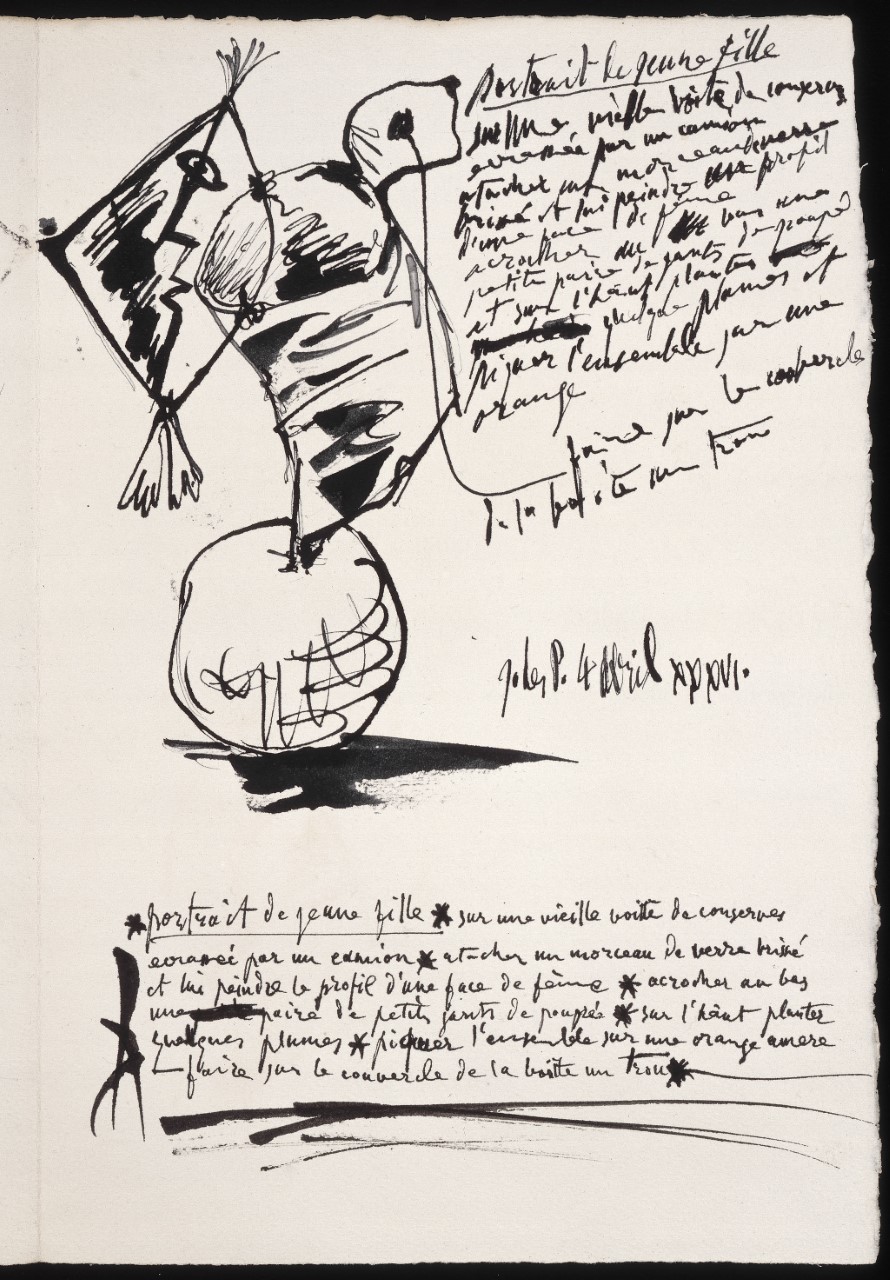 portrait de jeune fille
sur une vieille boite de conserve
ecrassée par un camion
atacher un morceau de verre
brisé et lui peindre profil
d'une face de féme
acrocher au bas une
petite paire de gants de poupé
et sur l'háut plantes
quelque plumes et
piquer l'ensemble sur une
orange
faire sur le couvercle
de la boite un trou
4 Abril XXXVI.
portrait de jeune fille * sur une vieille boite de conserves
ecrassée par un camion * atacher un morceau de verre brissé
et lui peindre le profil d'une face de féme * acrocher au bas
une paire de petits gants de poupée * sur l'háut planter
quelques plumes * piquer l'ensemble sur une orange amere
— faire sur le couvercle de la boite un trou *